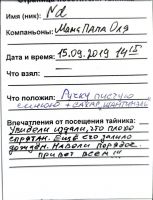 Имя (ник): Nd
Компаньоны: Мама Папа Оля
Дата и время: 15.09.2019 14 15
Что взял:
Что положил: Ручку пистую
синюю +
Впечатления от посещения тайника:
Увидели издали, что плохо
спрятан. Ещё его залило
дождём. Навели порядое
привет всем!!!